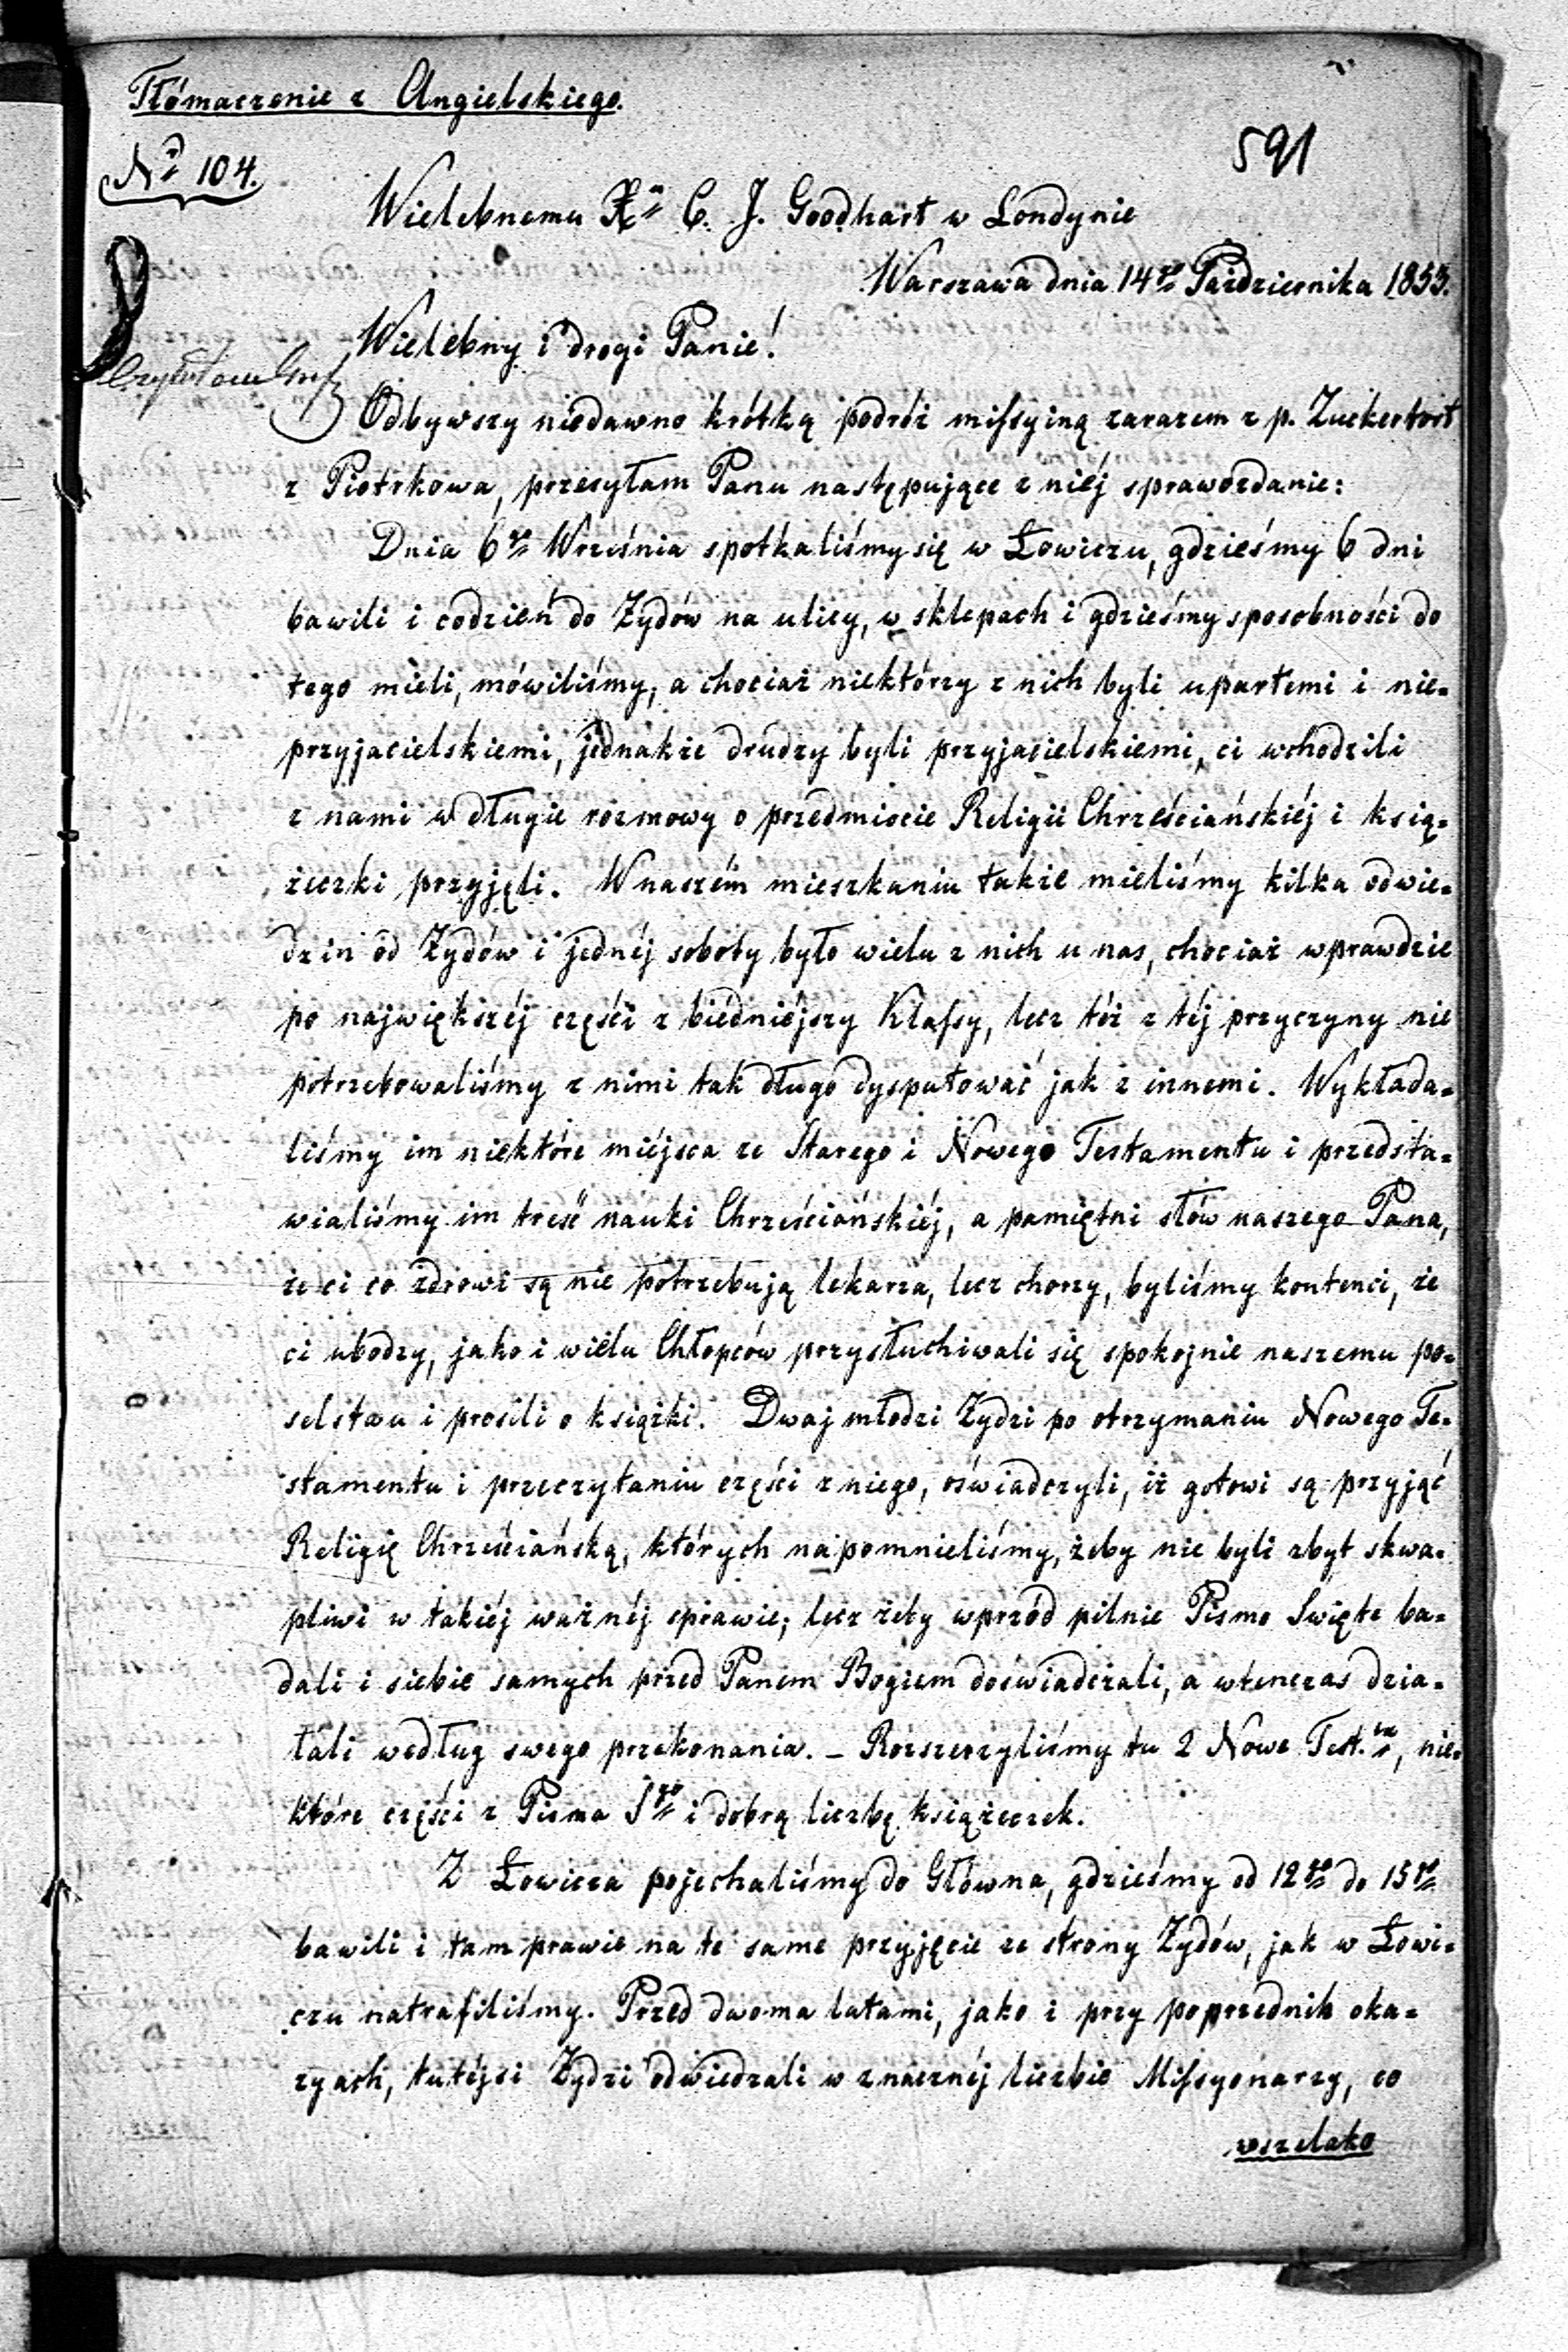 Tłómaczenie z Angielskiego.
591
No 104.
Wielebnemu Xu C. J. Goodhart w Londynie
Warszawa dnia 14go Października 1853.
Wielebny i drogi Panie!
Odbywszy niedawno krótką podróż missyiną zarazem z p. Zuckertort
z Piotrkowa, przesyłam Panu następujące z niéj sprawozdanie:
Dnia 6go Września spotkaliśmy się w Łowiczu, gdzieśmy 6 dni
bawili i codzień do Żydów na ulicy, w sklepach i gdzieśmy sposobności do
tego mieli, mówiliśmy, a chociaż niektórzy z nich byli upartemi i nie-
przyjacielskiemi, jednakże drudzy byli przyjacielskiemi, ci wchodzili
z nami w długie rozmowy o przedmiocie Religii Chrześciańskiéj i ksią-
żeczki przyjęli. W naszém mieszkaniu także mieliśmy kilka odwie-
dzin od Żydów i jednéj soboty było wielu z nich u nas, chociaż wprawdzie
po największéj części z biédniéjszy Klassy, lecz téż z téj przyczyny nie
potrzebowaliśmy z nimi tak długo dysputować jak z innemi. Wykłada-
liśmy im niektóre miéjsca ze Starego i Nowego Testamentu i przedsta-
wialiśmy im treść nauki Chrześciańskiéj, a pamiętni słów naszego Pana,
że ci co zdrowi są nie potrzebują lekarza, lecz chorzy, byliśmy kontenci, że
ci ubodzy, jako i wielu Chłopców przysłuchiwali się spokojnie naszemu po-
selstwu i prosili o książki. Dwaj młodzi Żydzi po otrzymaniu Nowego Te-
stamentu i przeczytaniu części z niego, oświadczyli, iż gotowi są przyjąć
Religię Chrześciańską, których napomnieliśmy, żeby nie byli zbyt skwa-
pliwi w takiéj ważnéj sprawie; lecz żeby wprzód pilnie Pismo Święte ba-
dali i siebie samych przed Panem Bogiem doświadczali, a wtenczas dzia-
łali według swego przekonania. – Rozszerzyliśmy tu 2 Nowe Test.ta, nie-
które części z Pisma Sgo i dobrą liczbę książeczek.
Z Łowicza pojechaliśmy do Główna, gdzieśmy od 12go do 15go
bawili i tam prawie na te same przyjęcie ze strony Żydów, jak w Łowi-
czu natrafiliśmy. Przed dwoma latami, jako i przy poprzednih oka-
zyach, tutéjsi Żydzi odwiedzali w znacznéj liczbie Missyonarzy, co
wszelako